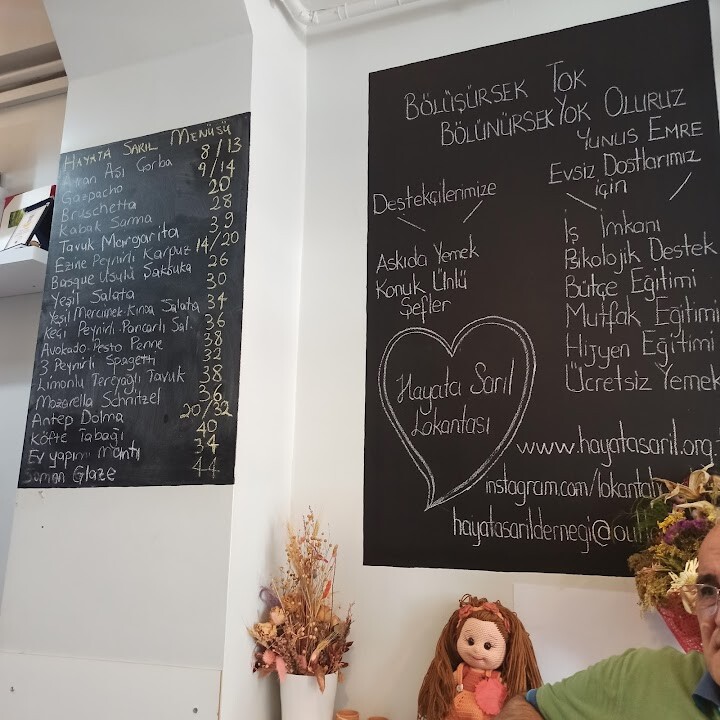 HAYATA SARIL MENÜSÜ
Ayran Ası Çorba 8/13
Gazpacho 9/14
Bruschetta 20
Kabak Sarma 28
Tavuk Margarita 39
Ezine Peynirli Karpuz 14/20
Basque Usulü Şakşuka 26
Yeşil Salata 30
Yeşil Mercimek-Kinoa Salata 34
Keçi Peynirli-Pancarlı Sal. 36
Avokado-Pesto Penne 38
3 Peynirli Spagetti 32
Limonlu Tereyağlı Tavuk 38
Mozarella Schnitzel 36
Antep Dolma 20/32
Köfte Tabağı 40
Ev yapımı mantı 34
Somon Glaze 44
BÖLÜŞÜRSEK TOK
BÖLÜNÜRSEK YOK OLURUZ
YUNUS EMRE
Destekçilerimize
Askıda Yemek
Konuk Ünlü
Şefler
Evsiz Dostlarımız
için
İş İmkanı
Psikolojik Destek
Bütçe Eğitimi
Mutfak Eğitimi
Hijyen Eğitimi
Ücretsiz Yemek
Hayata Sarıl
Lokantası
www.hayatasaril.org
instagram.com/lokanta
hayatasarildernegi@ou